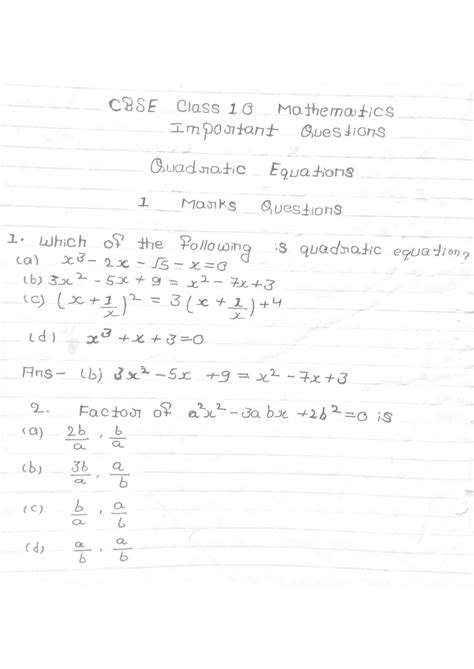 CBSE Class 10 Mathematics
Important Questions
Quadratic Equations
1 Marks Questions
1. Which of the following is quadratic equation?
(a) x³ - 2x - √5 - x = 0
(b) 3x² - 5x + 9 = x² - 7x + 3
(c) (x + 1/x)² = 3(x + 1/x) + 4
(d) x³ + x + 3 = 0
Ans - (b) 3x² - 5x + 9 = x² - 7x + 3
2. Factor of a²x² - 3abx + 2b² = 0 is
(a) 2b/a , b/a
(b) 3b/a , a/b
(c) b/a , a/b
(d) a/b , a/b